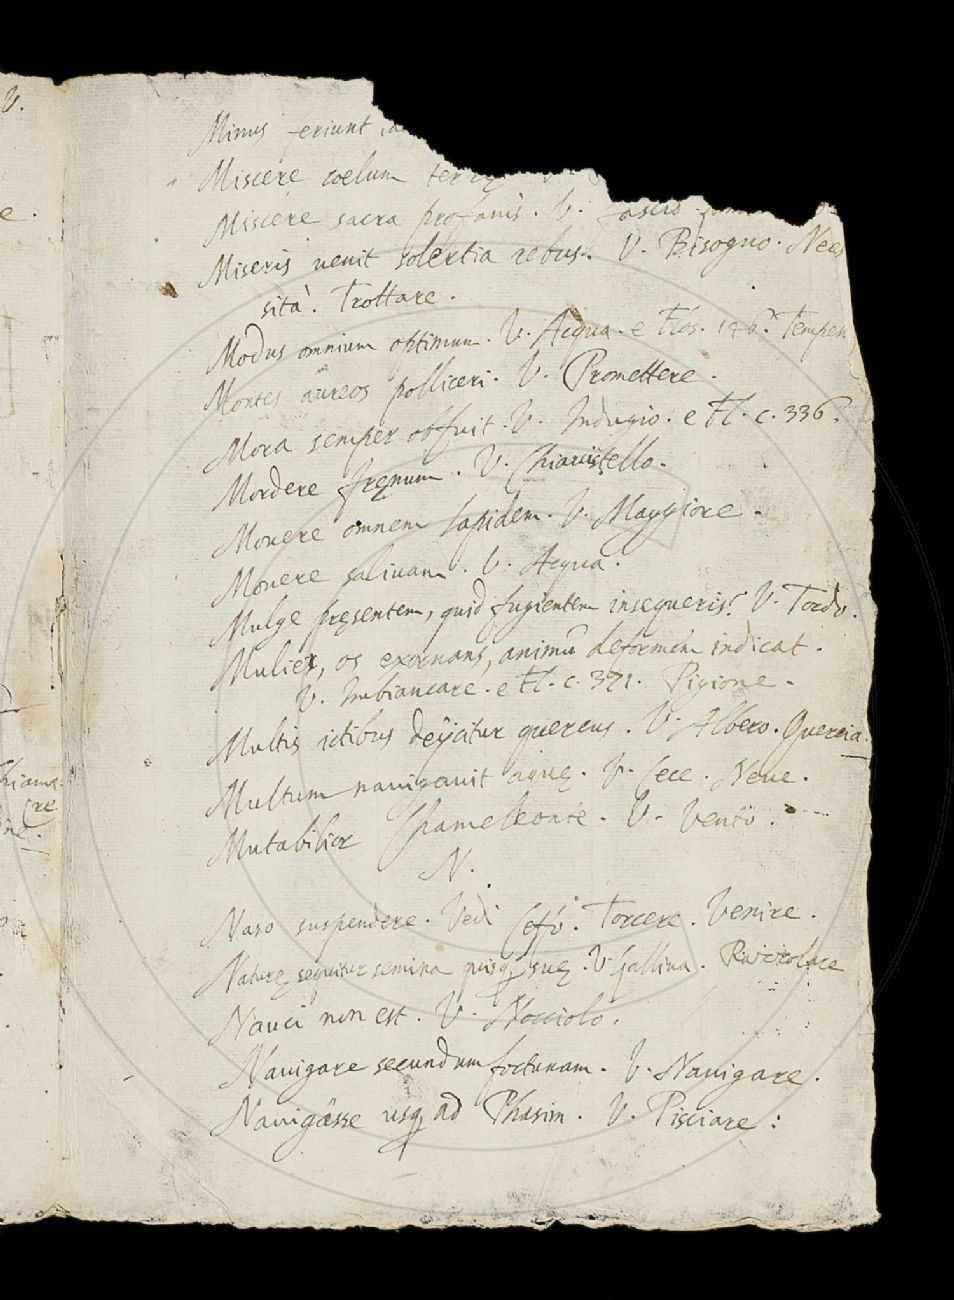 V.
e.
Minus feriunt
Miscere coelum terrę
Miscere sacra profanis. V. fascio
Miseris venit solertia rebus. V. Bisogno. Neces
sità. Trottare.
Modus omnium optimum. V. Acqua. e Flos. 146. Temper
Montes aureos polliceri. V. Promettere.
Mora semper obfuit. V. Indugio. e Fl. c. 336.
Mordere fręnum. V. Chiavistello.
Movere omnem lapidem. V. Maggiore.
Movere salivam. V. Acqua.
Mulge pręsentem, quid fugientem insequeris? V. Tordo.
Mulier, os exornans, animū deformem indicat.
V. Imbiancare. e Fl. c. 371. Pigione.
Multis ictibus deijcitur quercus. V. Albero. Quercia.
Multum navigavit aquę. V. Cece. Neve.
Mutabilior Chameleonte. V. Vento.
N.
Naso suspendere. Vedi Ceffo. Torcere. Venire.
Naturę sequitur semina quisq suę. V. Gallina. Ruzzolare
Nauci non est. V. Nocciolo.
Navigare secundum fortunam. V. Navigare.
Navigasse usq ad Phasim. V. Pisciare: